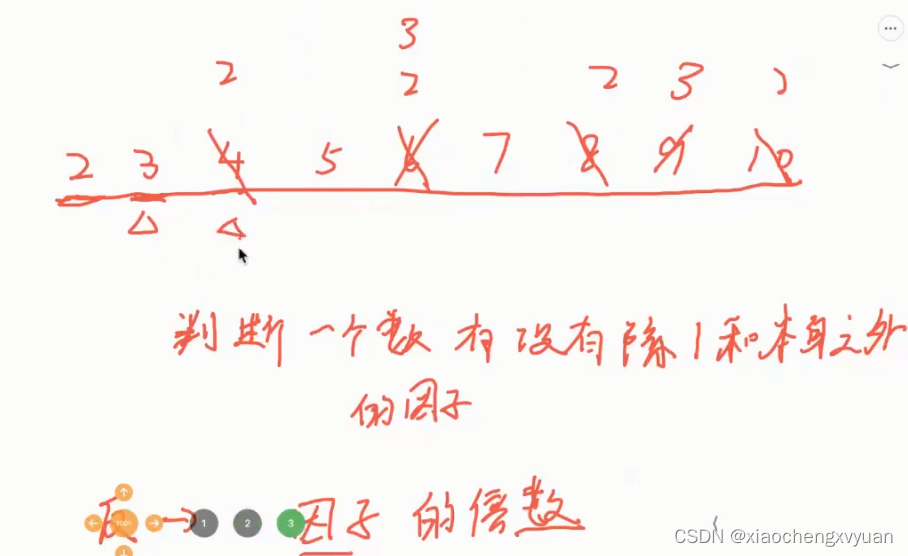 3
2 2 2 3 2
2 3 4 5 6 7 8 9 10
判断一个数有没有除1和本身之外
的因子
反→ 因子的倍数
100%
1 2 3
CSDN @xiaochengxvyuan